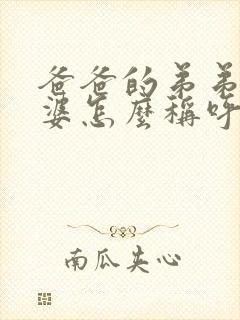 爸爸的弟弟
婆怎麼稱呼
南瓜夹心